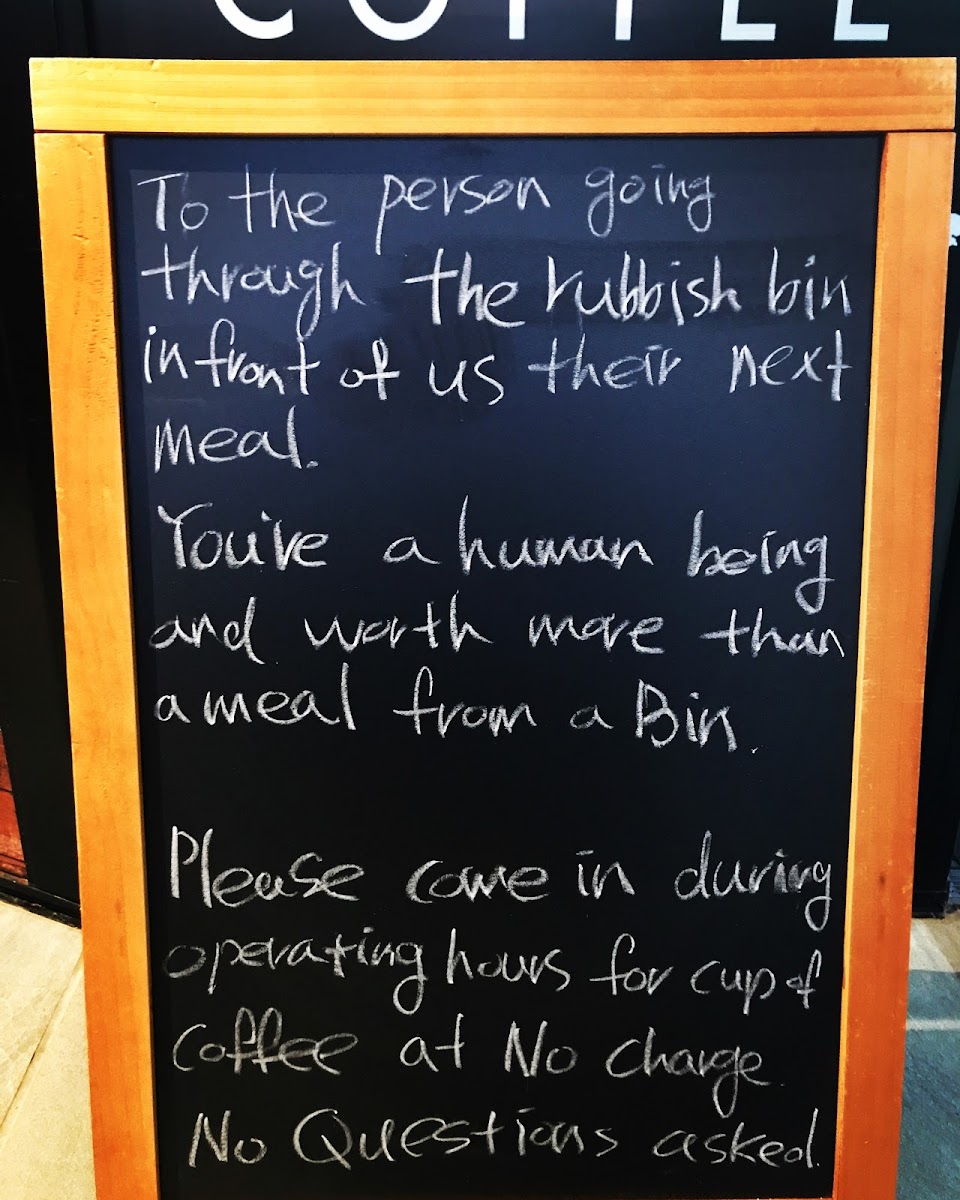 COFFEE
To the person going
through the rubbish bin
in front of us their next
meal.
You're a human being
and worth more than
a meal from a Bin.
Please come in during
operating hours for cup of
coffee at No charge.
No Questions asked.